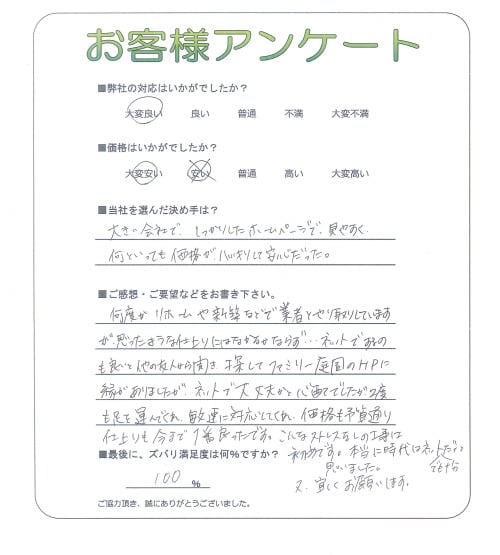 お客様アンケート
■弊社の対応はいかがでしたか？
大変良い 良い 普通 不満 大変不満
■価格はいかがでしたか？
大変安い 安い 普通 高い 大変高い
■当社を選んだ決め手は？
大きい会社で、しっかりしたホームページで、見やすく
何といっても価格がハッキリして安心だった。
■ご感想・ご要望などをお書き下さい。
何度かリホームや新築などで業者とやり取りしています
が、思ったような仕上りにはなかなかならず…ネットでするの
も良いと他の友人から聞き、探してファミリー庭園のHPに
縁がありましたが、ネットで大丈夫かと心配でしたが2度
も足を運んでくれ、敏速に対応してくれ、価格も予算通り
仕上りも今まで1番良かったです。こんなストレスなしの工事は
初めてです。本当に時代はネットだと
思いました。
又、宜しくお願います。
■最後に、ズバリ満足度は何％ですか？
100 ％
ご協力頂き、誠にありがとうございました。